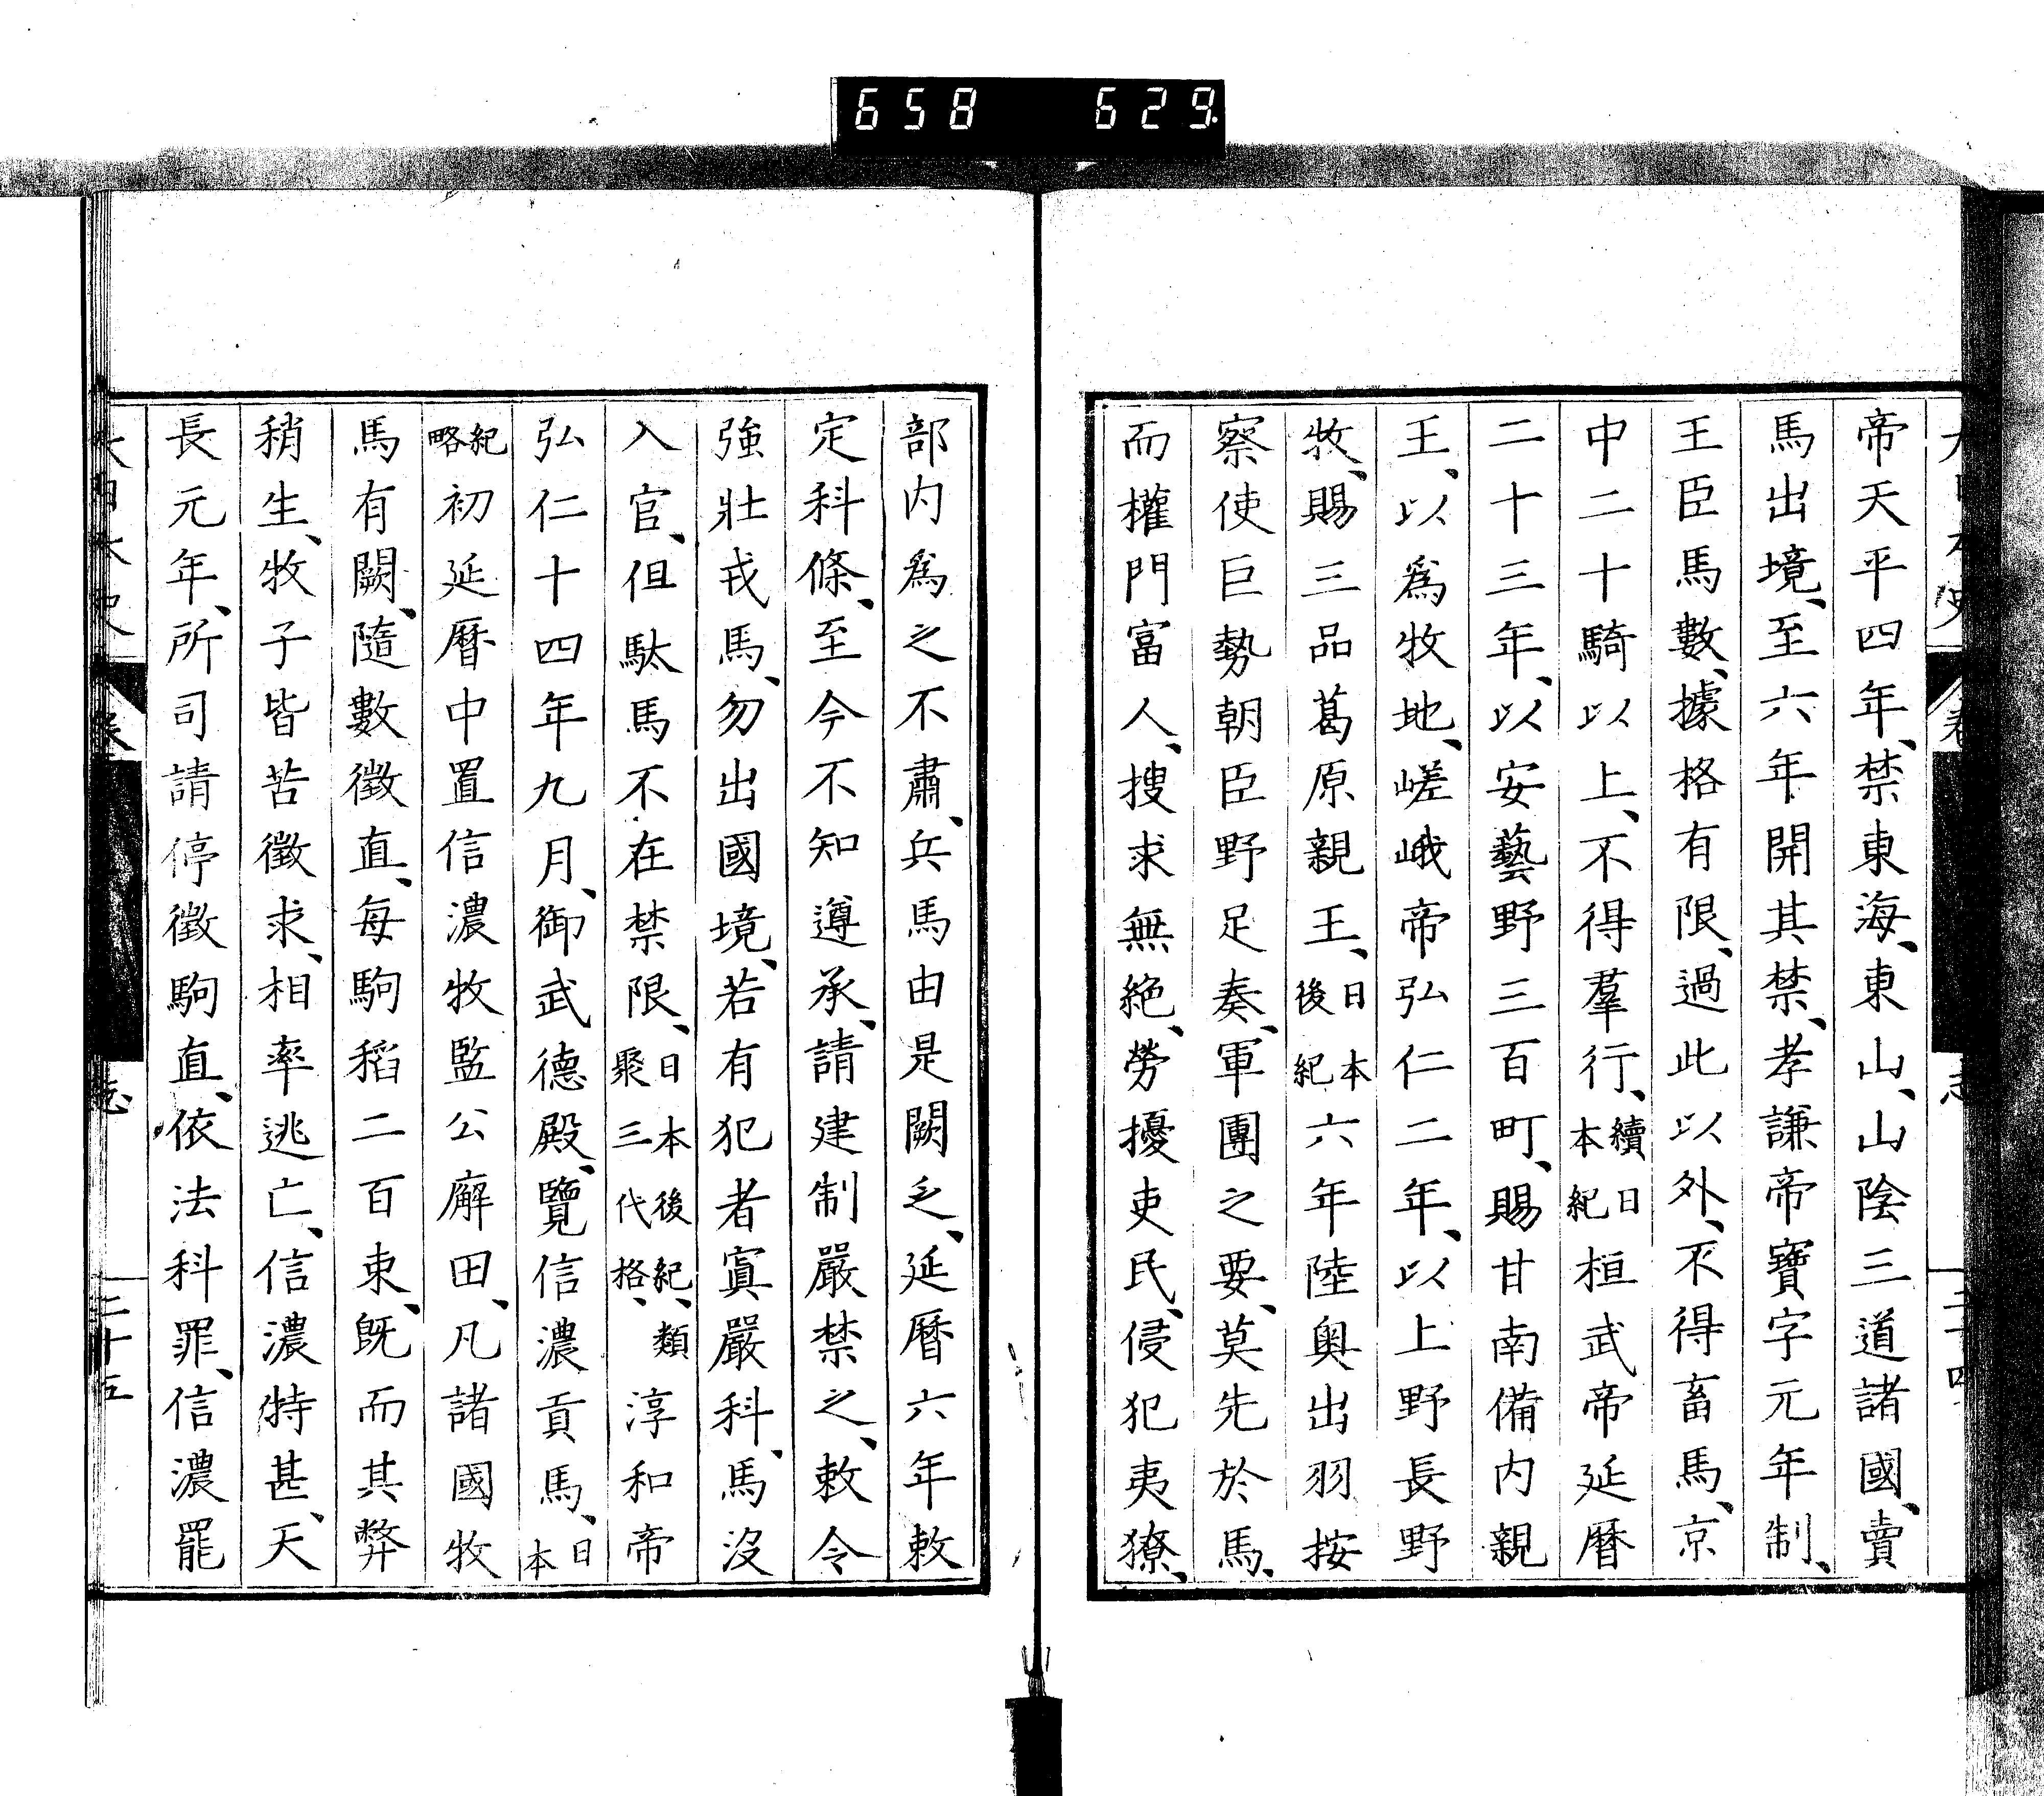 658 629
帝天平四年、禁東海、東山、山陰三道諸國、賣
馬出境、至六年開其禁、孝謙帝寶字元年制、
王臣馬數、據格有限、過此以外、不得畜馬、京
中二十騎以上、不得羣行、續日本紀桓武帝延曆
二十三年、以安藝野三百町、賜甘南備內親
王、以爲牧地、嵯峨帝弘仁二年、以上野長野
牧、賜三品葛原親王、日本後紀六年陸奥出羽按
察使巨勢朝臣野足奏、軍團之要、莫先於馬、
而權門富人、搜求無絶、勞擾吏民、侵犯夷獠、
部内爲之不肅、兵馬由是闕乏、延曆六年敕
定科條、至今不知遵承、請建制嚴禁之、敕令
強壯戎馬、勿出國境、若有犯者寘嚴科、馬沒
入官、但駄馬不在禁限、日本後紀、類聚三代格、淳和帝
弘仁十四年九月、御武德殿、覽信濃貢馬、日本
紀略初延曆中置信濃牧監公廨田、凡諸國牧
馬有闕、隨數徵直、每駒稻二百束、既而其弊
稍生、牧子皆苦徵求、相率逃亡、信濃特甚、天
長元年、所司請停徵駒直、依法科罪、信濃罷
大日本史
志
三十五